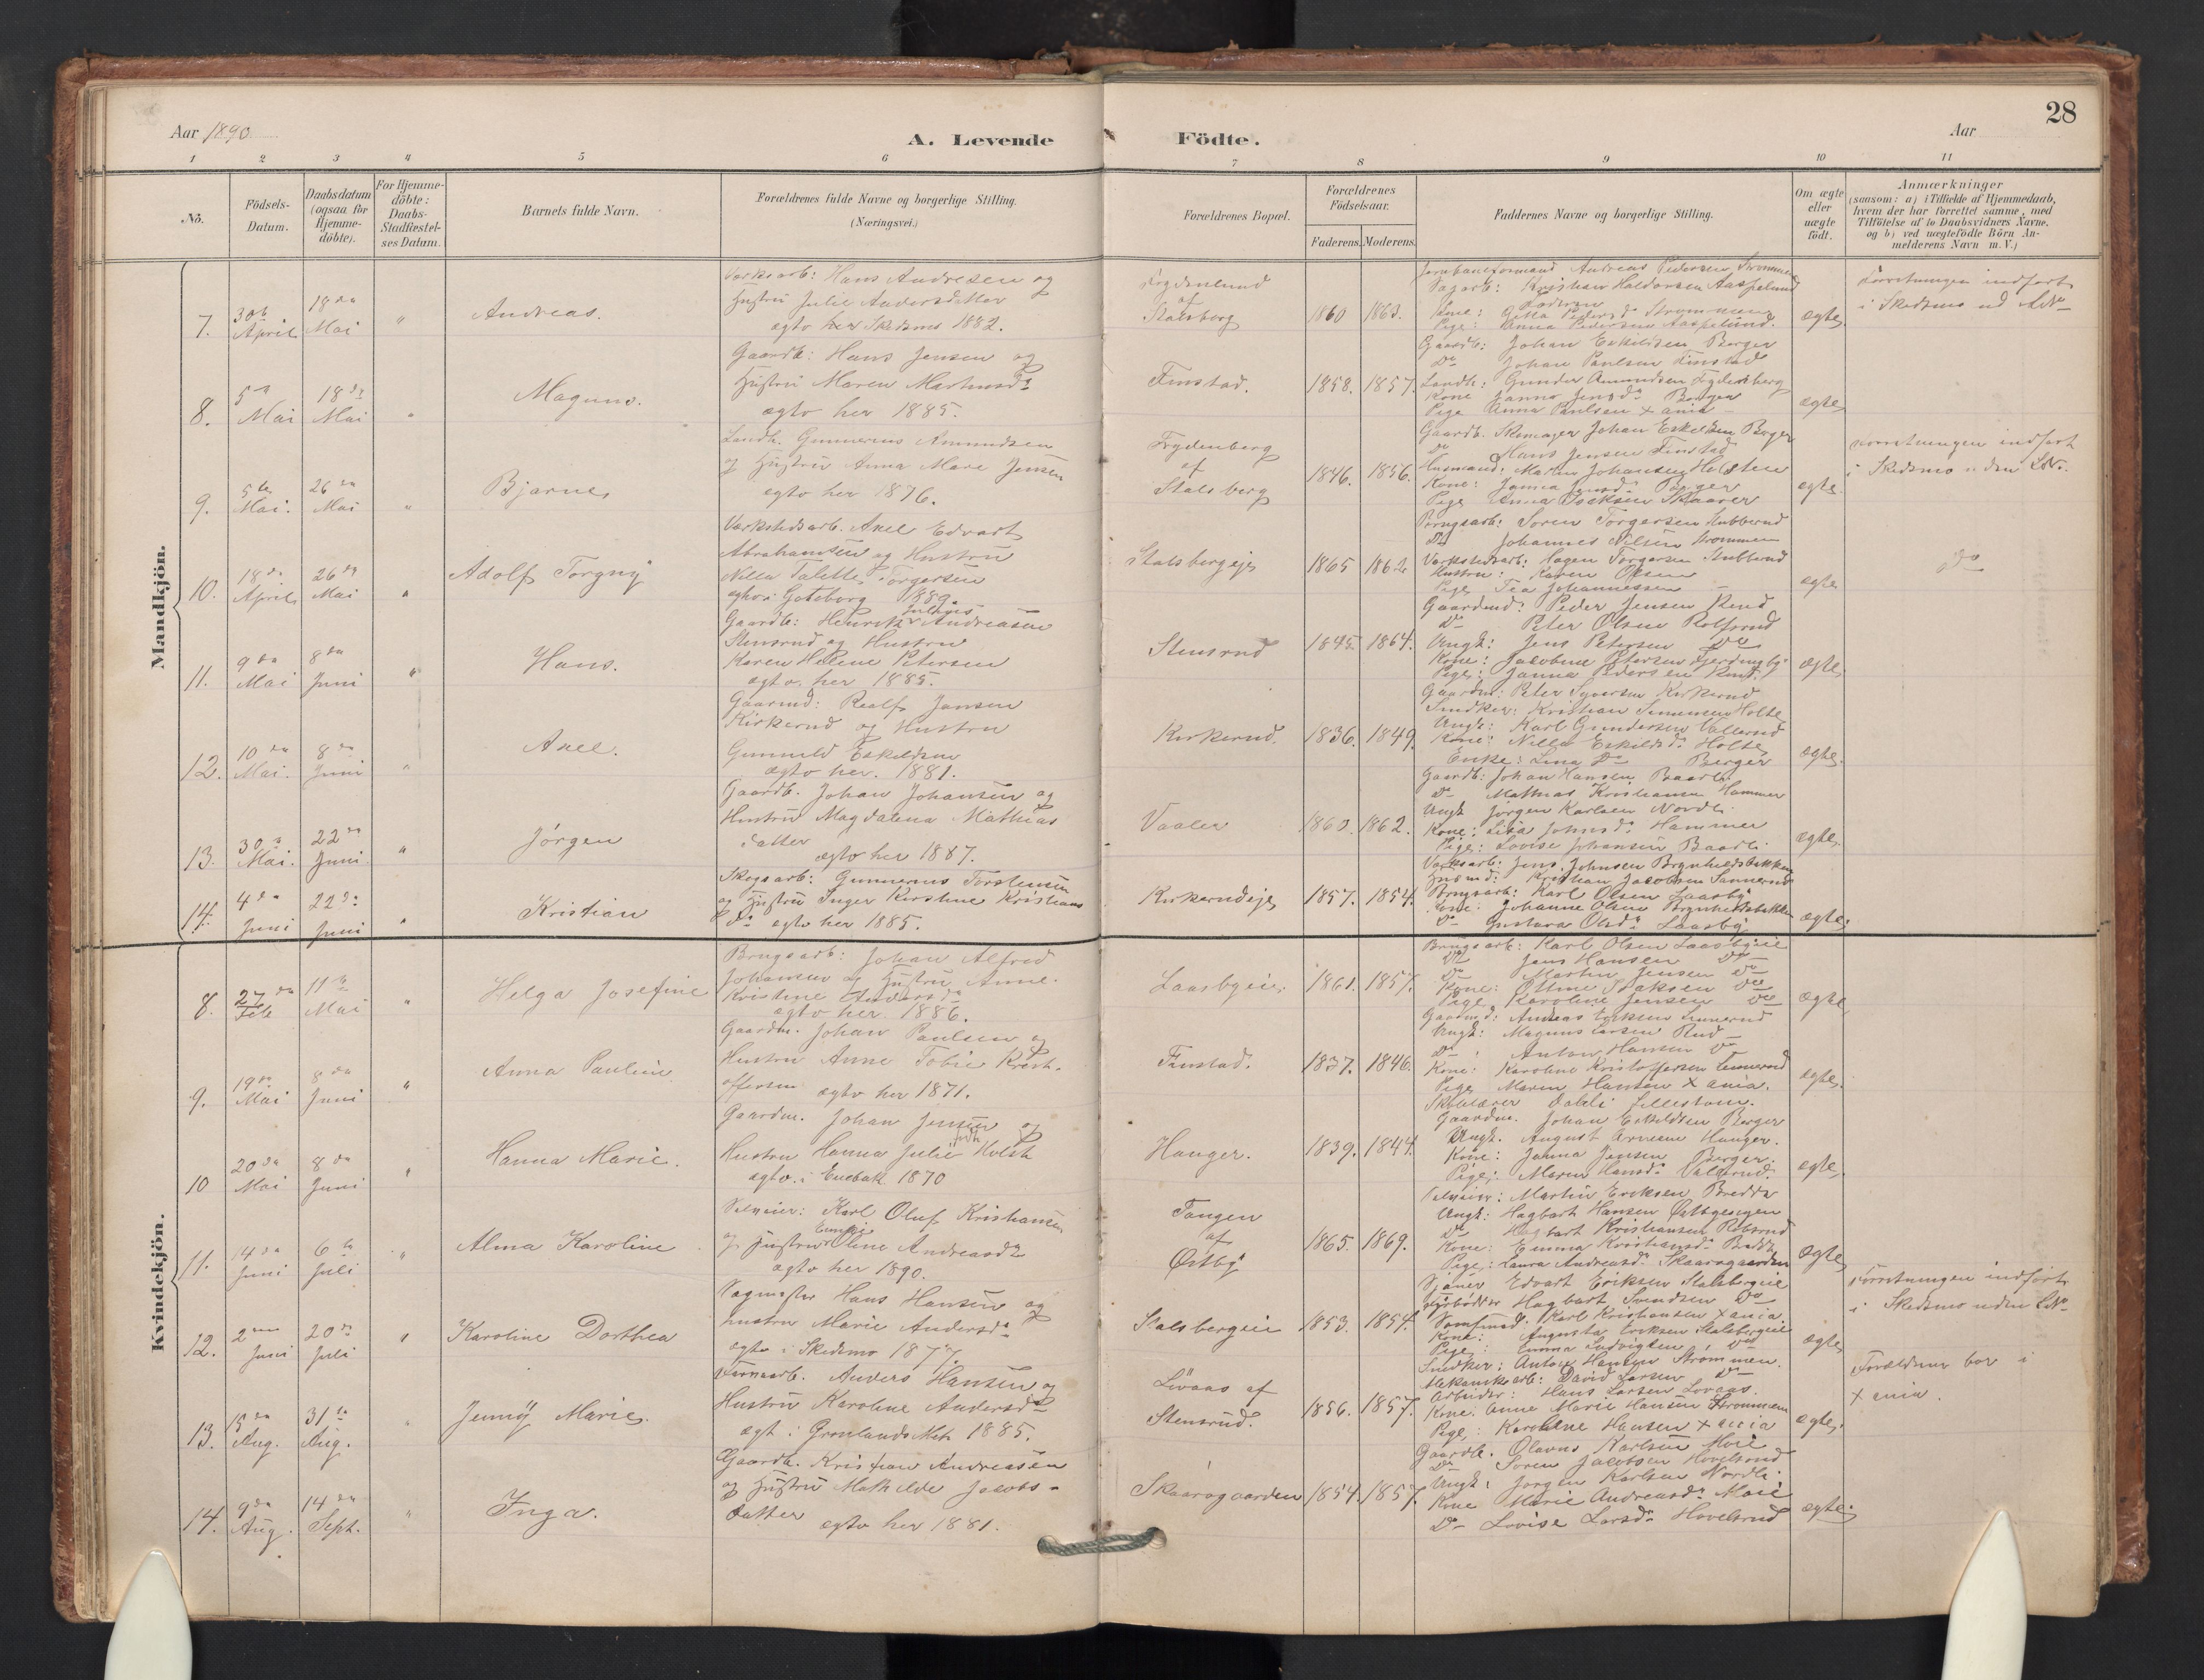 28
Aar 1890
A. Levende Födte.
Aar
1 2 3 4 5 6 7 8 9 10 11
No.
Födsels-Datum.
Daabsdatum (ogsaa for Hjemme-döbte).
For Hjemme-döbte: Daabs-Stadfæstel-ses Datum.
Barnets fulde Navn.
Forældrenes fulde Navne og borgerlige Stilling. (Næringsvei.)
Forældrenes Bopæl.
Forældrenes Födselsaar.
Faderens. Moderens.
Faddernes Navne og borgerlige Stilling.
Om ægte eller uægte födt.
Anmærkninger (saasom: a) i Tilfælde af Hjemmedaab, hvem der har forrettet samme, med Tilföielse af to Daabsvidners Navne, og b) ved uægtefödte Börn An-melderens Navn m.V.)
Mandkjön.
7. 30te April 18de Mai " Andreas.
Værksarb: Hans Andresen og
Hustru Julie Andersdatter
egtv her Skedsmo 1882.
Frydenlund
af
Stalsberg
1860 1863.
Jernbaneformand Andreas Pedersen Strømmen
Sagarb: Kristian Haldorsen Aaspelund
Pige: Anna Pedersen Aaspelund.
ægte.
Forretningen indført
i Skedsmo
8. 5te Mai 18de Mai " Magnus.
Gaardb: Hans Jensen og
Hustru Maren Martinusdr
egtv her 1885.
Finstad.
1858. 1857.
Gaardb: Johan Eskildsen Berger
Do Johan Paulsen Finstad
Landh: Gunder Amundsen Frydenberg
Kone Janna Jensdr Berger
Pige Anna Paulsen Xania
ægte
9. 5te Mai. 26de Mai " Bjarne
Landh. Gunnerius Amundsen
og Hustru Anna Mare Jensen
egtv her 1876.
Frydenberg
af
Stalsberg
1846. 1856.
Gaardb. Johan Eskildsen Berger
Do Hans Jensen Finstad
Husmand: Martin Johansen Holsten
Kone: Janna Jensdr Berger
Pige Anna Isaksen Skaarer
ægte.
Forretningen indført
i Skedsmo uden LNr.
10. 18de April 26de Mai " Adolf Torgny
Værkstedsarb. Axel Edvart
Abrahamsen og Hustru
Nilla Talette Torgersen
egtv i Gøteborg 1889.
Stalsbergeje
1865 1862
Brugsarb: Søren Torgersen Stubberud
Do Johannes Nilsen Strømmen
Værkstedsarb: Hagen Torgersen Stubberud
Hustru: Karen Olsen
Pige Tea Johannessen
ægte
Do
11. 9de Mai 8de Juni " Hans.
Gaardb: Henrik Julius Andreasen
Stensrud og Hustru
Karen Helene Petersen
egtv. her 1885.
Stensrud
1845 1864.
Gaardmd: Peder Jensen Rud
Do Peter Olsen Rolfsrud
Ungk: Jens Petersen Do
Kone: Jacobine Petersen Fjerdingby
Pige: Janna Pedersen Rud.
ægte
12. 10de Mai. 8de Juni " Axel.
Gaarmd: Realf Jansen
Kirkerud og Hustru
Gunnild Eskildsen
egtv her. 1881.
Kirkerud.
1836. 1849.
Gaardm: Peter Syversen Kirkerud
Snedker: Kristian Simensen Holte
Ungk: Karl Gundersen Vallerud
Kone: Nilla Eskildsdr Holte
Enke: Lina Do Berger
ægte.
13. 30te Mai. 22de Juni " Jörgen
Gaardb. Johan Johansen og
Hustru Magdalena Mathias
datter
egtv her 1887.
Vaaler
1860. 1862.
Gaardb: Johan Hansen Baarli
Do Mathias Kristiansen Hammer
Ungk Jørgen Karlsen Nordli
Kone: Lisa Johnsdr Hammer
Pige: Lovise Johansen Baarli
ægte.
14. 4de Juni 22de Juni " Kristian
Skogsarb: Gunnerius Torstensen
og Hustru Inger Kirstine Kristians
Dr egtv her 1885.
Kirkerudeje
1857. 1854.
Værksarb: Jens Johnsen Brynhildsbakken
Husmd: Kristian Jacobsen Sannerud
Brugsarb: Karl Olsen Laasby
Kone: Johanne Olsen Brynhildsbakken
Do Gustava Olsdr Laasby
ægte.
Kvindekjön.
8. 27de Feb 11te Mai " Helga Josefine
Brugsarb: Johan Alfred
Johansen og Hustru Anne
Kristine Andersdr
egtv her 1886.
Laasbyeie.
1861. 1857.
Brugsarb: Karl Olsen Laasbyeie
Do Jens Hansen Do
Do Martin Jensen Do
Kone: Otline Isaksen Do
Pige Karoline Jensen Do
ægte
9. 19de Mai 8de Juni " Anna Pauline
Gaardm. Johan Paulsen og
Hustru Anne Tobie Krist-
offersen egtv her 1871.
Finstad.
1837. 1846.
Gaardmd: Andreas Eriksen Tennerud
Ungk: Magnus Larsen Rud
Do: Anton Hansen Do
Kone: Karoline Kristoffersen Tennerud
Pige Maren Hansen Xania.
ægte.
10 20de Mai 8de Juni " Hanna Marie.
Gaardm. Johan Jensen og
Hustru Hanna Julie født Holst
egtv. i Enebak 1870
Hanger.
1839. 1844.
Skolelærer Dahli Lillestrøm.
Gaardm. Johan Eskildsen Berger
Ungk. August Arnesen Hanger.
Kone: Janna Jensen Berger.
Pige: Maren Hansdr Valgerud
ægte.
11. 14de Juni 6te Juli " Alma Karoline
Selveier: Karl Oluf Kristiansen
og Hustru Emilie Oline Andreasdr
egtv her 1890.
Tangen
af
Østby
1865. 1869.
Selveier: Martin Eriksen Bredde
Ungk: Hagbart Hansen Østbyengen
Do Hagbart Kristiansen
Kone: Emma Kristiansdr
Pige: Laura Andreasdr Skaarsgaarden
ægte
12. 2den Juni 20de Juli " Karoline Dorthea
Sagmester Hans Hansen og
Hustru Marie Andersdr
egtv i Skedsmo 1877.
Stalsbergeie
1853. 1854.
Edvart Eriksen Stalsbergeie
Hagbart Svendsen Do
Karl Kristiansen Xania
Kone: Augusta Eriksen Stalsbergeie
Pige: Emma Ludvigsen Do
ægte
Forretningen indført
i Skedsmo uden LNr
13. 15de Aug. 31te Aug. " Jenny Marie.
Jernarb. Anders Hansen og
Hustru Karoline Andersdr
egt i Grønlands Mek 1885.
Lövaas af
Stensrud.
1856. 1857.
Snedker: Anton Hansen Strømmen.
Mekaniskarb: David Larsen Do
Arbeider: Hans Larsen Lovaas.
Kone: Anne Marie Hansen Strømmen
Pige: Karoline Hansen Xania
ægte.
Forældrene bor i
Xania.
14. 9de Aug. 14de Sept. " Inga.
Gaardb. Kristian Andreasen
og Hustru Mathilde Jacobs-
datter egtv her 1881.
Skaarsgaarden
1854. 1857.
Gaardb. Olavus Karlsen Moie
Do Søren Jacobsen Hovelsrud
Ungk: Jørgen Karlsen Nordli
Kone Marie Andreasdr Moie
Do Lovise Larsdr Hovelsrud
ægte.